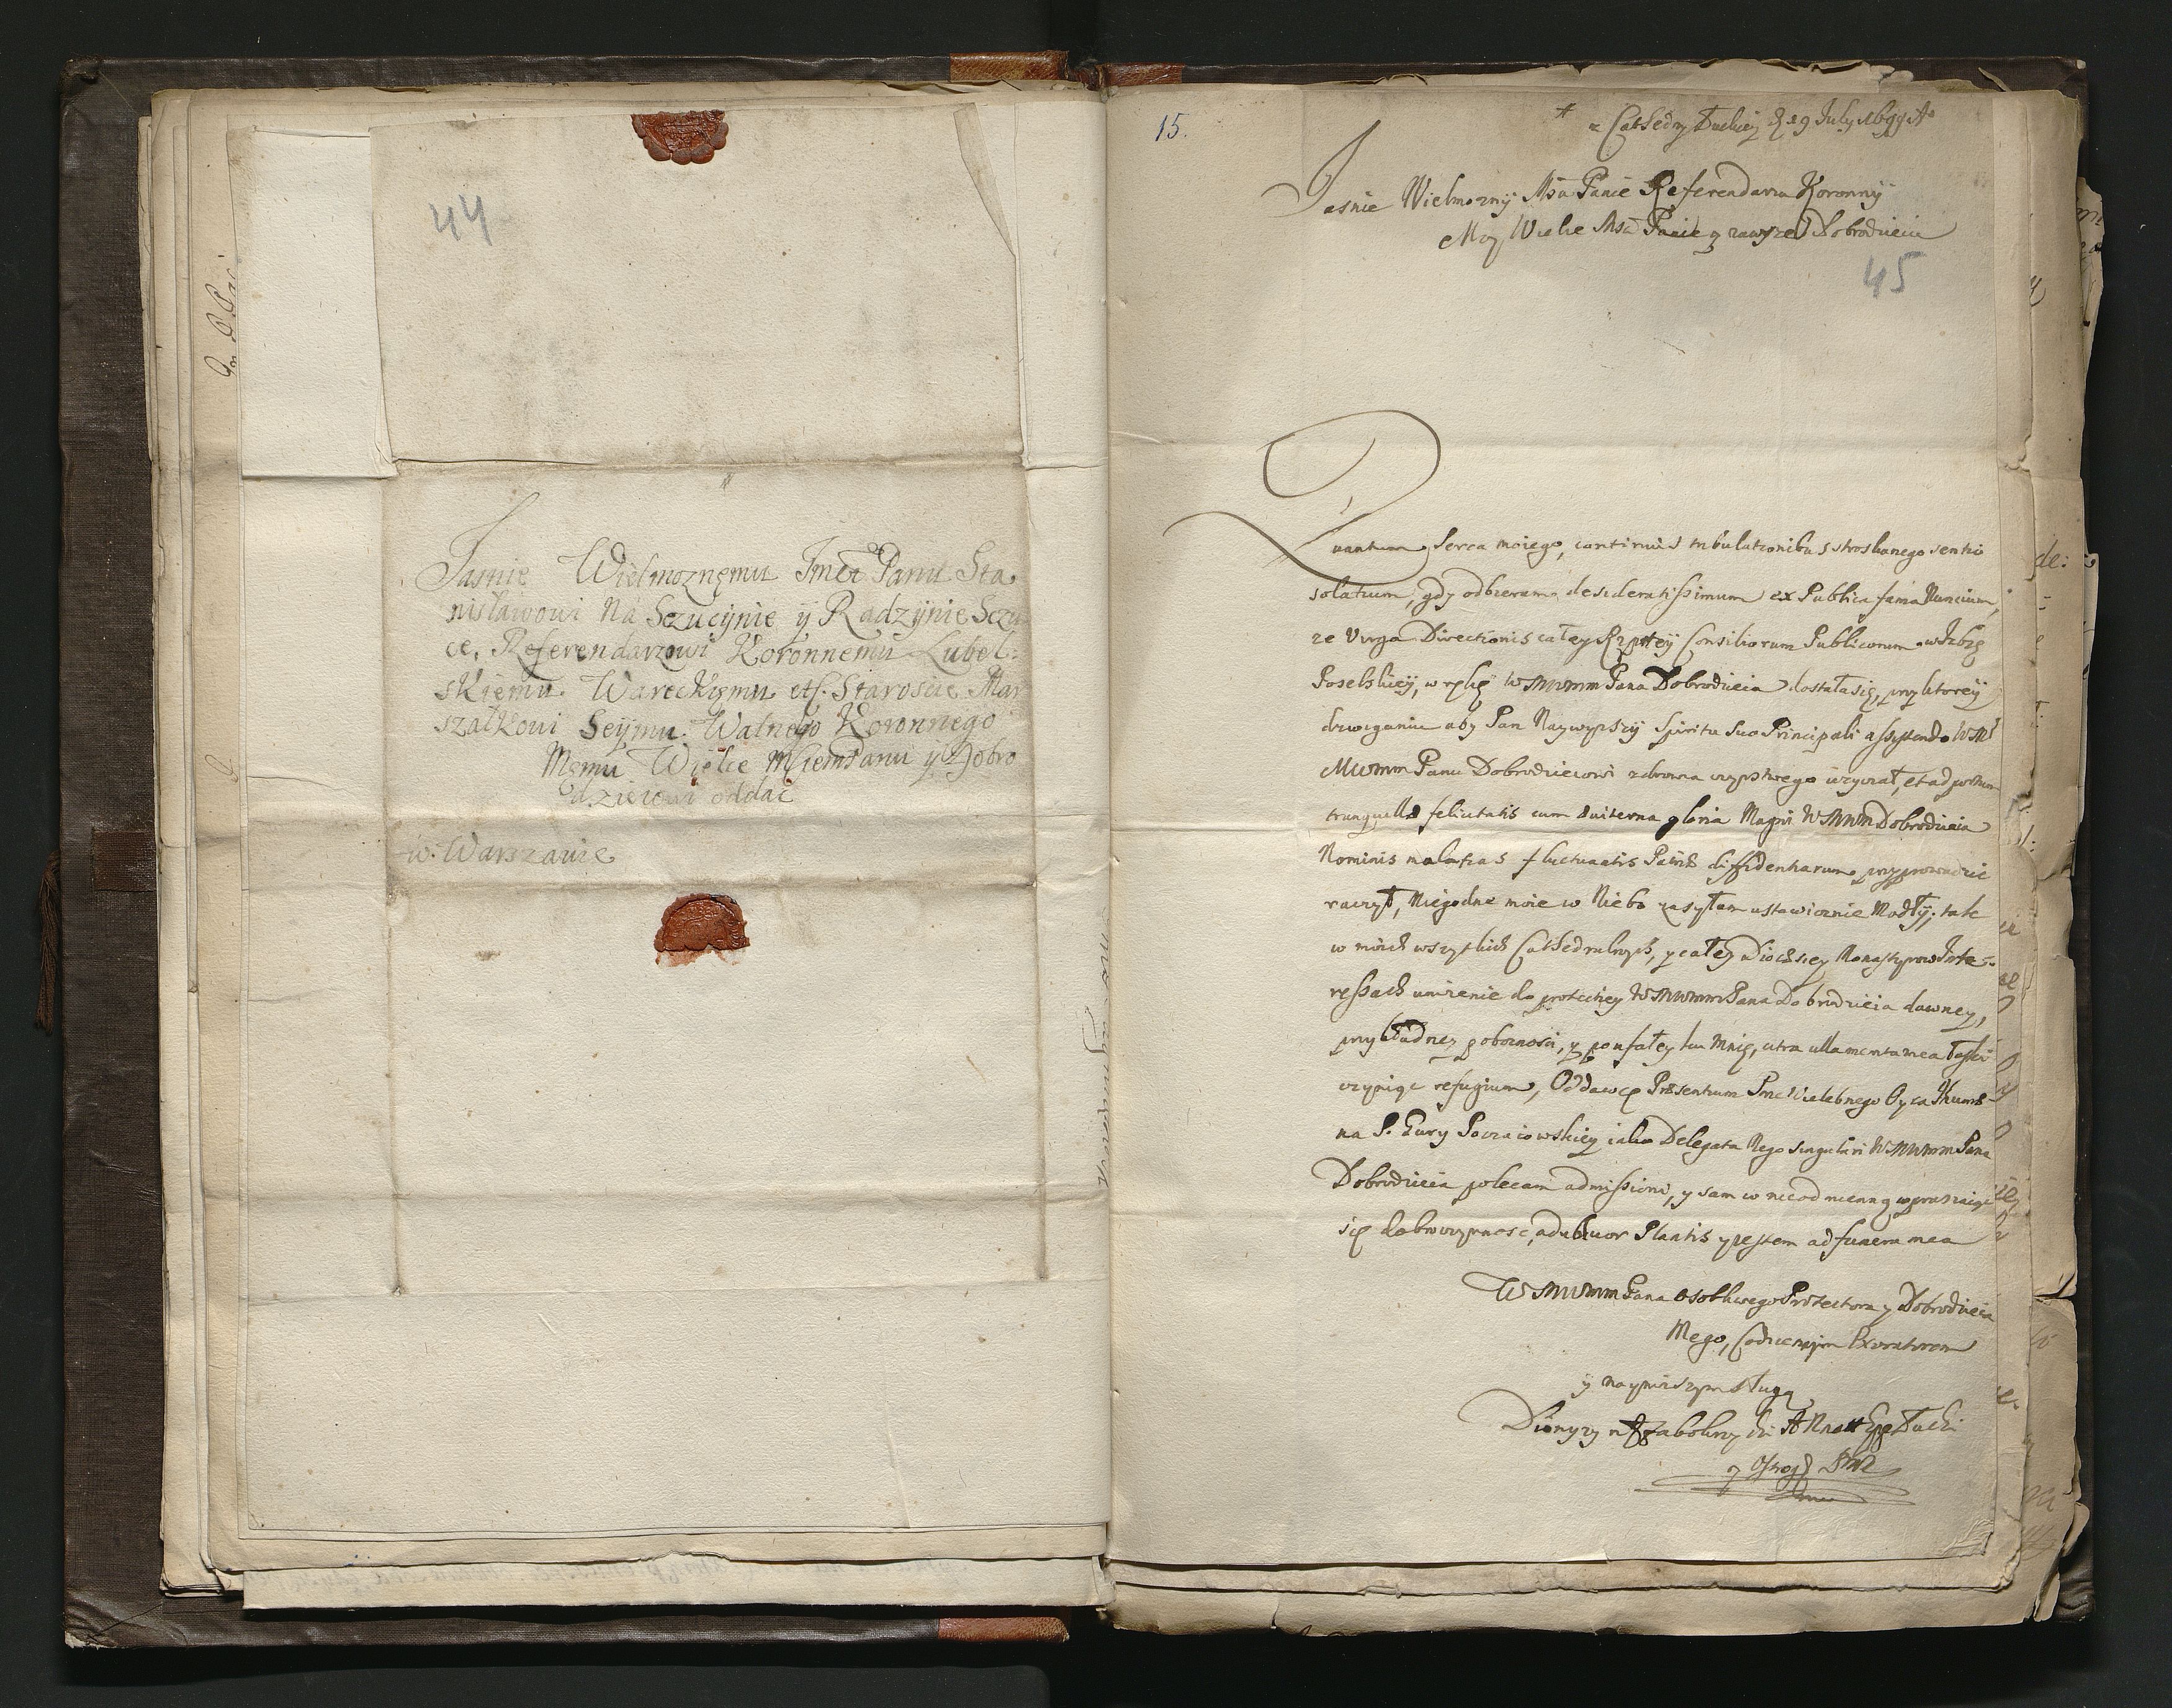 44
Jasnie Wielmoznemu Jmci Panu Sta
nisławowi Na Sczucÿnie ÿ Radzÿnie Sczu
ce, Referendarzowi Koronnemu Lubel:
skiemu. Wareckiemu etc. Staroscie, Mar
szałkowi Seÿmu Walnego Koronnego
Memu Wielce Mſciemu Panu ÿ Dobro
dzieiowi oddać
w Warszawie
15.
z Cathedry Łuckiey 29 July 1699 A°
Jasnie Wielmoznÿ Mśći Panie Referendarzu Koronnÿ
Moy Wielce Mśći Panie y zawsze Dobrodzieiu
45
Quantum serca moiego, continuis tribulationibus stroskanego sentio
solatium, gdy odbieram desideratissimum ex Publica fama Nuncium,
ze Virga Directionis całey Rzptey Consiliorum Publicorum w Izbę
Poselskieÿ, w rękę WMMM Pana Dobrodzieia dostała się, przy ktorey
dzwiganiu aby Pan Naywyzszÿ Spiritu Suo Principali assistendo WM
MMM Panu Dobrodzieiowi zdrowia czerstwego uzyczał, et ad portum
tranquillæ felicitatis cum æviterna gloria Magni WMMM Dobrodzieia
Nominis fluctuantis Patriæ diffidentiarum przyprowadzic
raczył, Niegodne moie w Niebo zasyłam ustawicznie Modłÿ; tak
w moich wszystkich Cathedralnych, y całey Diocæsiey Monastyrow Inte
ressach unizenie do protectiey WMMM Pana Dobrodzieia dawney,
przykładney pobozności, y ku Mnie, citra ulla merita mea łaski
czyniąc refugium, Oddawcę Præsentium Przewielebnego Oyca Ihumæ
na S. Gury Poczaiowskiey iako Delegata Mego singulari WMMM Pana
Dobrodzieia polecam admissioni, y sam w nieodmienną wpraszaiąc
się dobroczynnosc, advolvor Plantis y iestem ad funera mea
WMMM Pana osobliwego Protectora y Dobrodzieia
Mego, Codziennym Exoratorem
ÿ naynizszym sługą
Dionyzy Zabokrzycki Łucki
y Ostrog